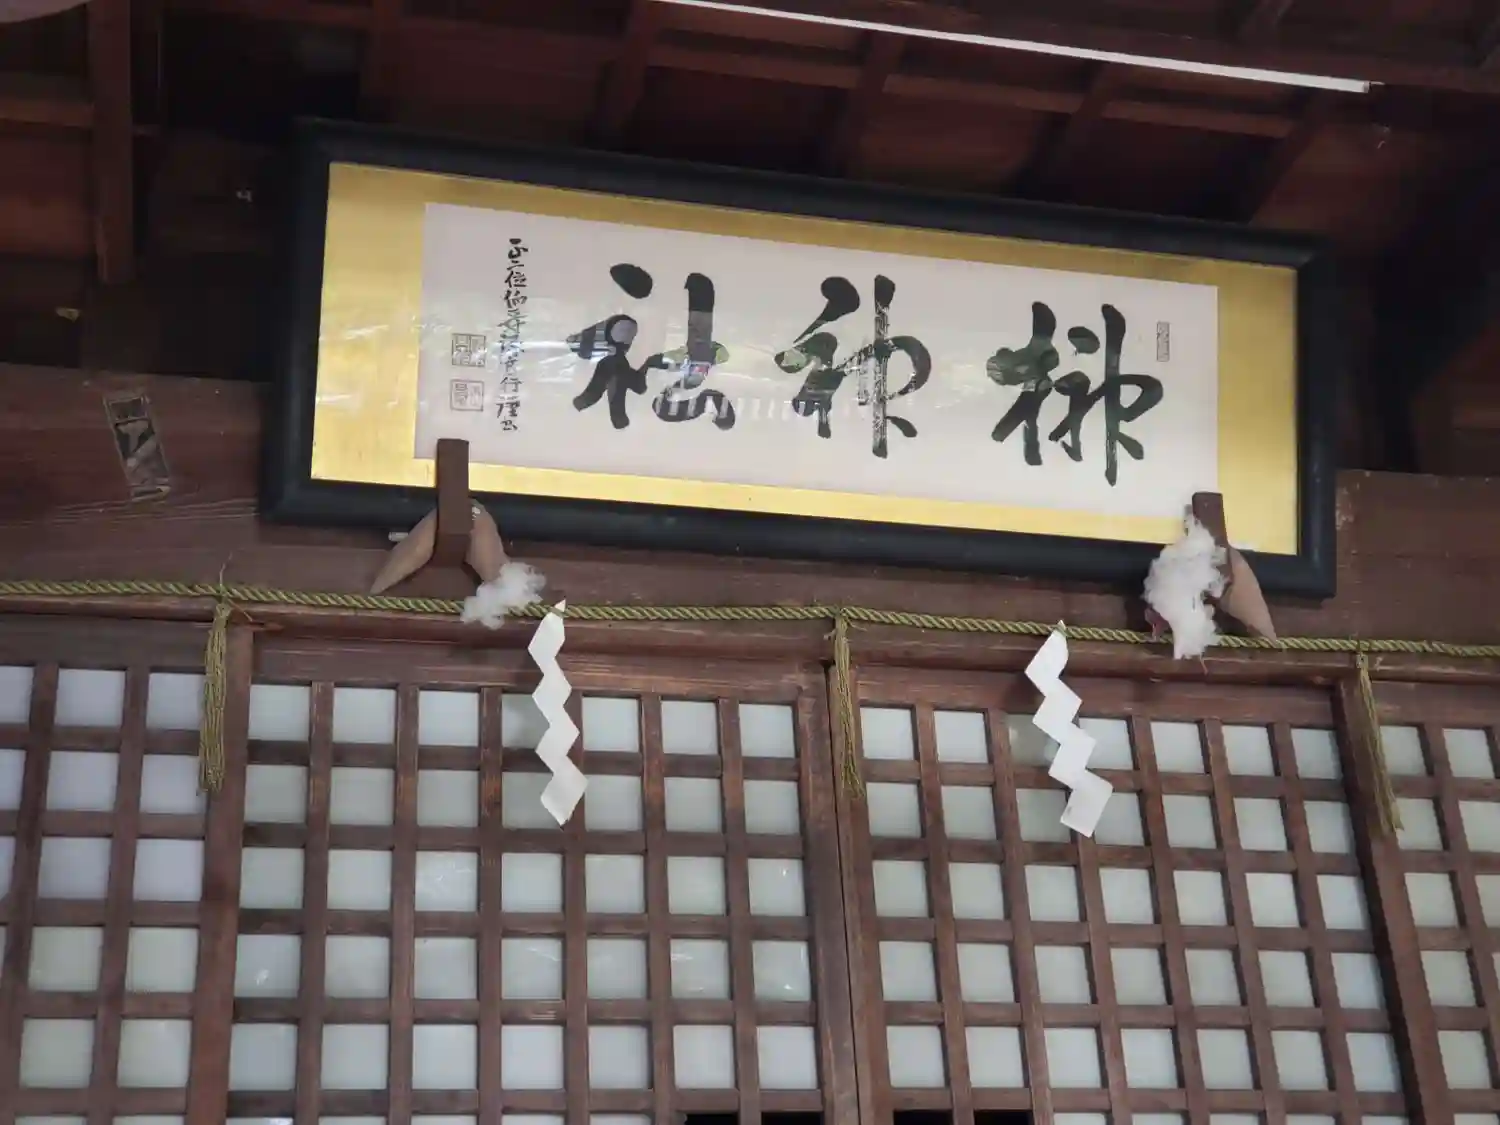 榊神社
正二位伯爵行謹書